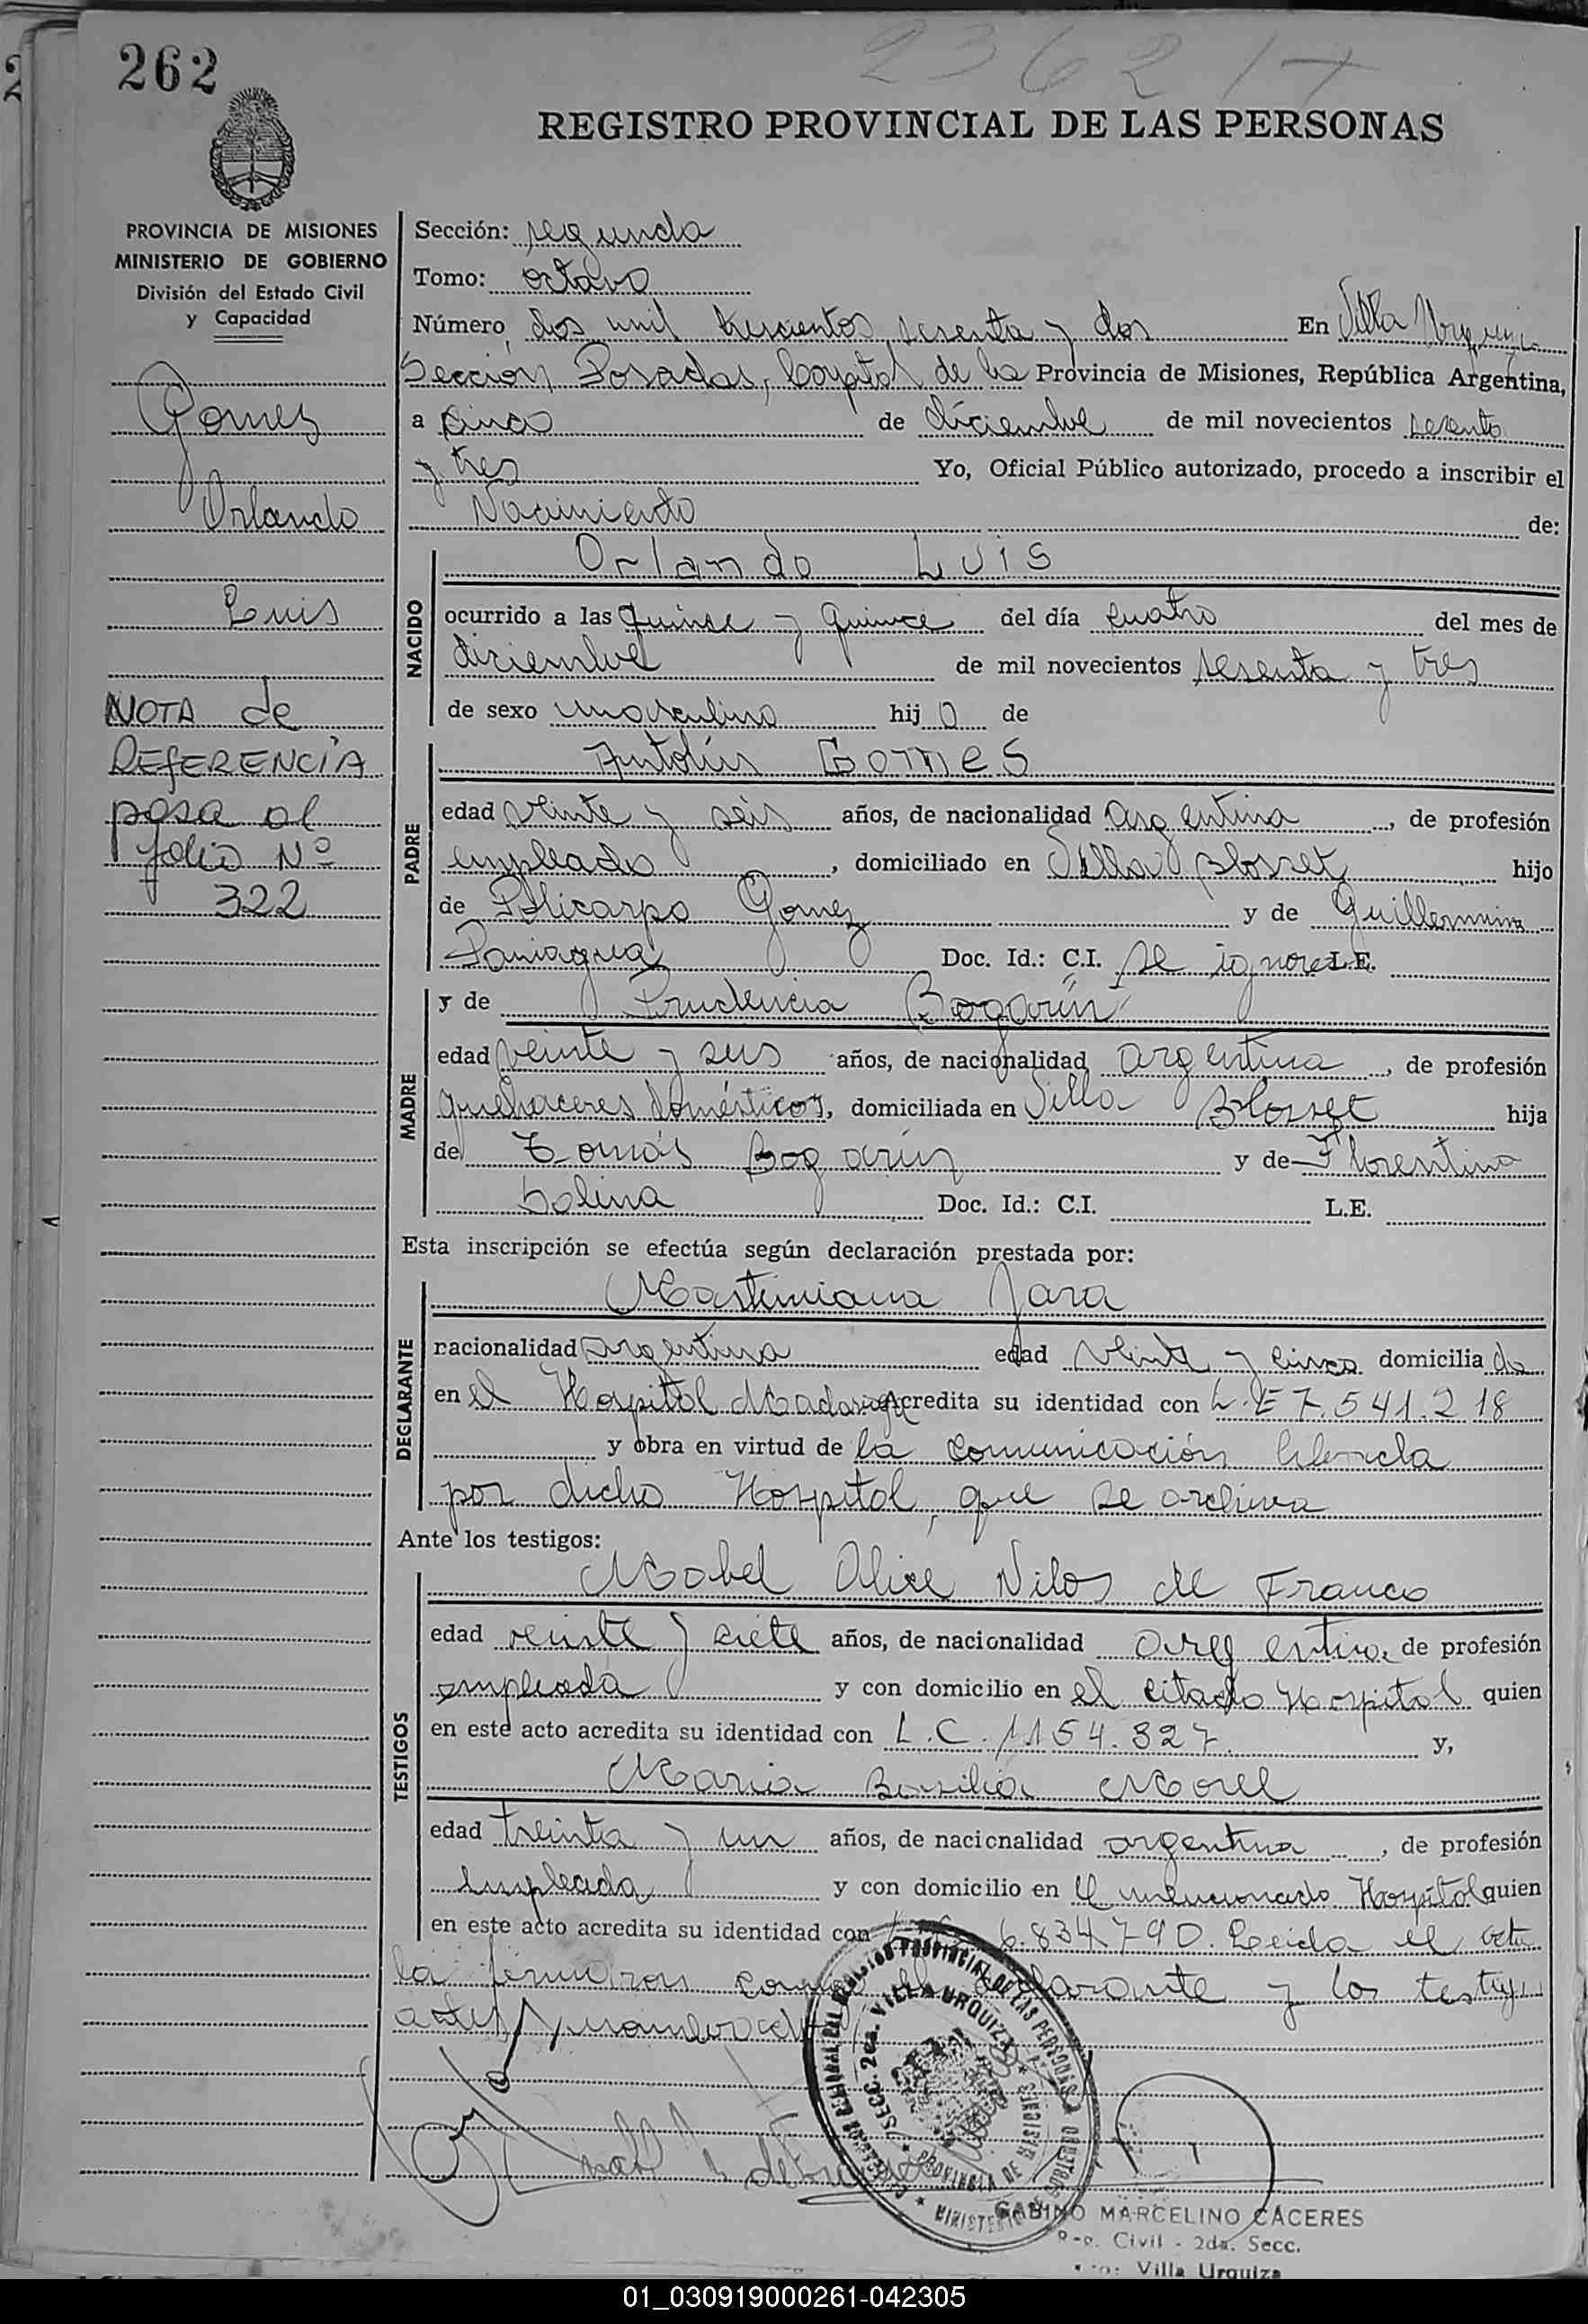 262
2362/7
REGISTRO PROVINCIAL DE LAS PERSONAS
PROVINCIA DE MISIONES
MINISTERIO DE GOBIERNO
División del Estado Civil
y Capacidad
Gomez
Orlando
Luis
NOTA de
REFERENCIA
pasa al
folio Nº
322
Sección: segunda
Tomo: octavo
Número dos mil trescientos sesenta y dos En Villa Urquiza
Sección Posadas, Capital de la Provincia de Misiones, República Argentina,
a cinco de diciembre de mil novecientos sesenta
y tres Yo, Oficial Público autorizado, procedo a inscribir el
Nacimiento de:
NACIDO
Orlando Luis
ocurrido a las quince y quince del día cuatro del mes de
diciembre de mil novecientos sesenta y tres
de sexo masculino hijo de
PADRE
Antolín Gomes
edad veinte y seis años, de nacionalidad argentina, de profesión
empleado, domiciliado en Villa Blosset hijo
de Policarpo Gomez y de Guillermina
Paniagua Doc. Id.: C.I. se ignora L.E.
MADRE
y de Prudencia Bogarín
edad veinte y seis años, de nacionalidad argentina, de profesión
quehaceres domésticos, domiciliada en Villa Blosset hija
de Tomás Bogarín y de Florentina
Solina Doc. Id.: C.I. L.E.
Esta inscripción se efectúa según declaración prestada por:
DECLARANTE
Mastiniana Jara
nacionalidad argentina edad veinte y cinco domiciliada
en el Hospital Madariaga Acredita su identidad con L.E 7.541.218
y obra en virtud de la comunicación librada
por dicho Hospital, que se archiva
Ante los testigos:
TESTIGOS
Mabel Alise Nilos de Franco
edad veinte y siete años, de nacionalidad argentina, de profesión
empleada y con domicilio en el citado Hospital quien
en este acto acredita su identidad con L.C. 1154.327 y,
Maria Basilia Morel
edad treinta y un años, de nacionalidad argentina, de profesión
empleada y con domicilio en el mencionado Hospital quien
en este acto acredita su identidad con 6.834.790. Leida el acta
la firmaron conmigo el declarante y los testigos
antes nombrados
SECC. 2da. VILLA URQUIZA
PROVINCIA DE MISIONES
GABINO MARCELINO CACERES
Civil - 2da. Secc.
Villa Urquiza
01_030919000261-042305